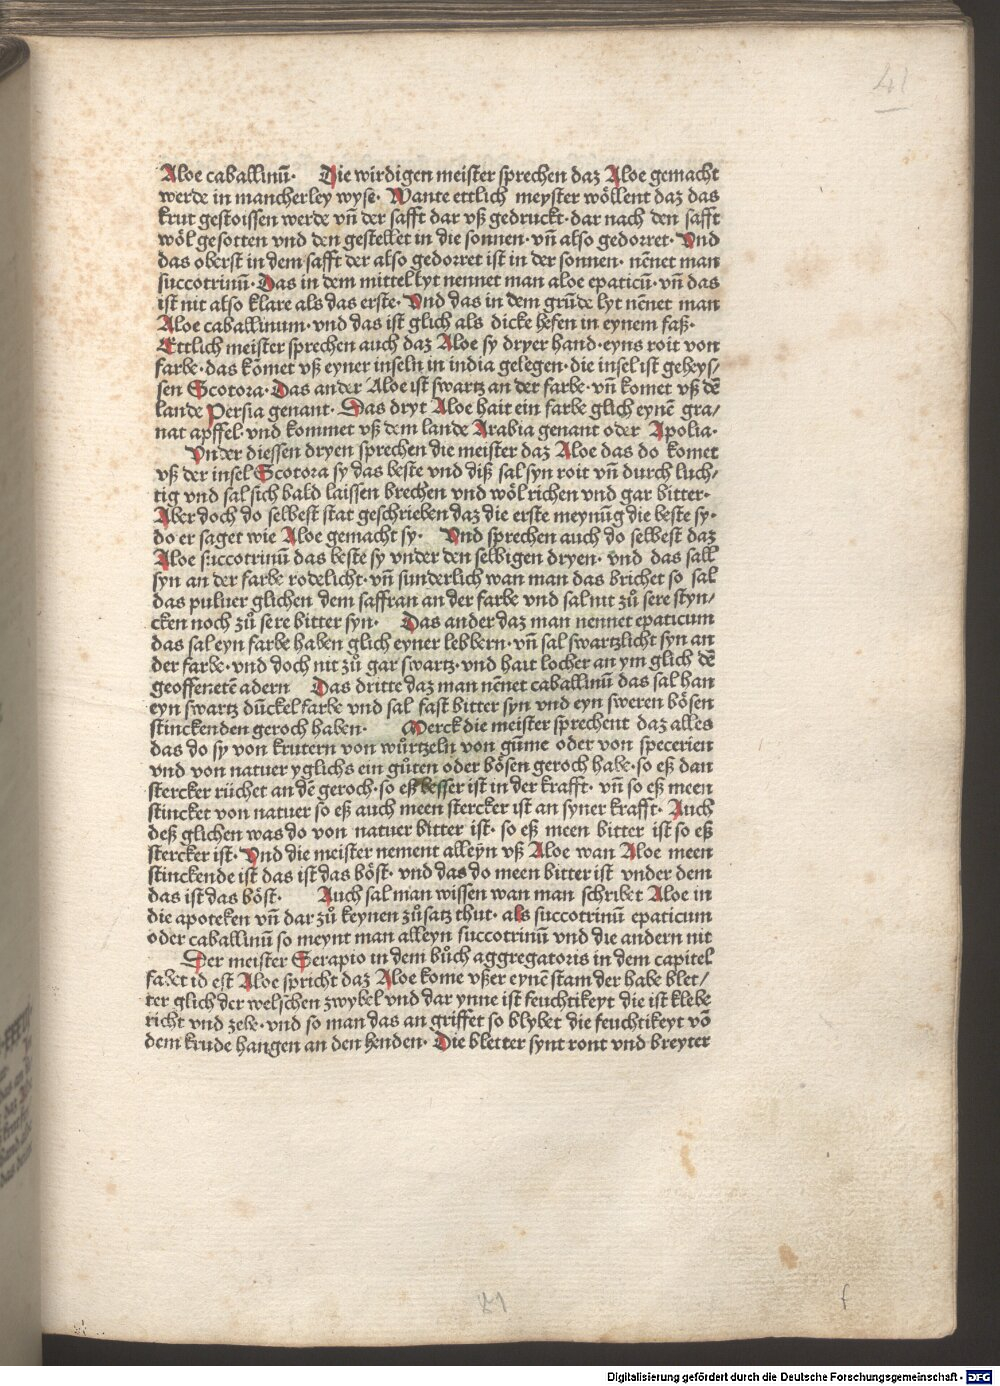 41
Aloe caballinū· Die wirdigen meister sprechen daz Aloe gemacht
werde in mancherley wyse· Wante ettlich meyster wöllent daz das
krut gestoissen werde vn̄ der safft dar vß gedruckt· dar nach den safft
wöl gesotten vnd den gestellet in die sonnen· vn̄ also gedorret· Vnd
das oberst in dem safft der also gedorret ist in der sonnen· nēnet man
succotrinū· Das in dem mittel lyt nennet man aloe epaticū· vn̄ das
ist nit also klare als das erste· Vnd das in dem grūde lyt nēnet man
Aloe caballinum· vnd das ist glich als dicke hefen in eynem faß·
Ettlich meister sprechen auch daz Aloe sy dryer hand· eyns roit von
farbe· das kōmet vß eyner inseln in india gelegen· die insel ist geheys/
sen Scotora· Das ander Aloe ist swartz an der farbe· vn̄ komet vß dē
lande Persia genant· Das dryt Aloe hait ein farbe glich eynē gra/
nat apffel· vnd kommet vß dem lande Arabia genant oder Apolia·
Vnder diessen dryen sprechen die meister daz Aloe das do komet
vß der insel Scotora sy das beste vnd diß sal syn roit vn̄ durch luch/
tig vnd sal sich bald laissen brechen vnd wöl richen vnd gar bitter·
Aber doch do selbest stat geschrieben daz die erste meynūg die beste sy·
do er saget wie Aloe gemacht sy· Vnd sprechen auch do selbest daz
Aloe succotrinū das beste sy vnder den selbigen dryen· vnd das sall
syn an der farbe rodelicht· vn̄ sunderlich wan man das brichet so sal
das puluer glichen dem saffran an der farbe vnd sal nit zů sere styn/
cken noch zů sere bitter syn· Das ander daz man nennet epaticum
das sal eyn farbe haben glich eyner lebbern· vn̄ sal swartzlicht syn an
der farbe· vnd doch nit zů gar swartz· vnd hait locher an ym glich dē
geoffenetē adern Das dritte daz man nēnet caballinū das sal han
eyn swartz dūckel farbe vnd sal fast bitter syn vnd eyn sweren bösen
stinckenden geroch haben· Merck die meister sprechent daz alles
das do sy von krutern von wůrtzeln von gūme oder von specerien
vnd von natuer yglichs ein gůten oder bösen geroch habe· so eß dan
stercker rüchet an dē geroch· so eß besser ist in der krafft· vn̄ so eß meen
stincket von natuer so eß auch meen stercker ist an syner krafft· Auch
deß glichen was do von natuer bitter ist· so eß meen bitter ist so eß
stercker ist· Vnd die meister nement alleyn vß Aloe wan Aloe meen
stinckende ist das ist das böst· vnd das do meen bitter ist vnder dem
das ist das böst· Auch sal man wissen wan man schribet Aloe in
die apoteken vn̄ dar zů keynen zůsatz thut· als succotrinū epaticum
oder caballinū so meynt man alleyn succotrinū vnd die andern nit
Der meister Serapio in dem bůch aggregatoris in dem capitel
faber id est Aloe spricht daz Aloe kome vßer eynē stam der habe blet/
ter glich der welschen zwybel vnd dar ynne ist feuchtikeyt die ist klebe
richt vnd zehe· vnd so man das an griffet so blybet die feuchtikeyt vō
dem krude hangen an den henden· Die bletter synt ront vnd breyter
f
Digitalisierung gefördert durch die Deutsche Forschungsgemeinschaft - DFG